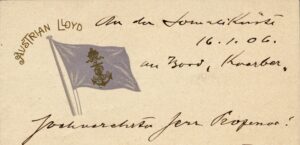 AUSTRIAN LLOYD
An der Somaliküste
16.1.06.
an Bord,
Hochverehrter Herr Professor!